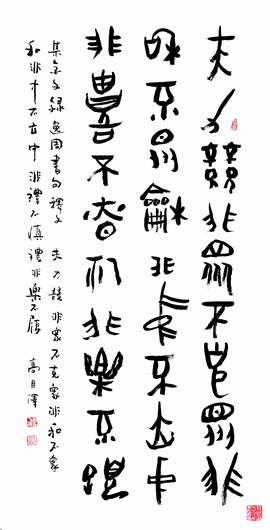 夫力競非眾不克眾非
咊不眾龢非中不立中
非豊不昚礼非樂不履
集金文録逸周書句釋文 夫力競非衆不克衆非和不衆
和非中不立中非禮不慎禮非樂不履